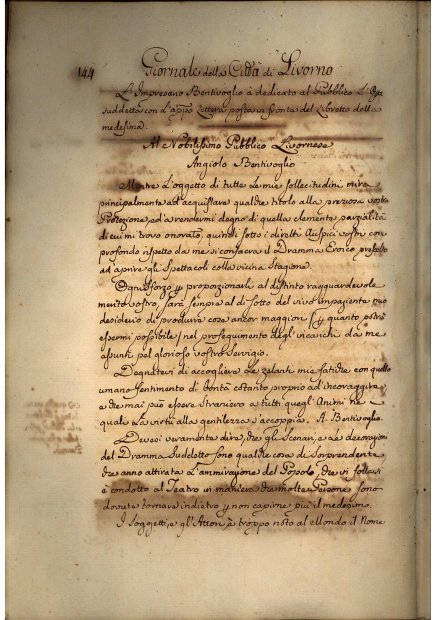 144 Giornale della Città di Livorno
L'Impresario Bentivoglio à dedicato al Pubblico l'Opa
suddetta con l'appo Lettera posta in fronta del Libretto della
medesima.
Al Nobilissimo Pubblico Livornese
Angiolo Bentivoglio
Mentre l'oggetto di tutte le mie sollecitudini mira
principalmente all'acquistare qualche titolo alla preziosa vostra
Protezione, ed a rendermi degno di quella clemente parzialità
di cui mi trovo onorato, quindi sotto i diretti Auspicj vostri con
profondo rispetto da me si consacra il Dramma Eroico prescelto
ad aprire gli Spettacoli colla vicina Stagione.
Ogni sforzo p proporzionarli al distinto ragguardevole
merito vostro, sarà sempre al di sotto del vivo impaziente mio
desiderio di produrre cose ancor maggiori (p quanto potrà
essermi possibile) nel proseguimento degl'incarichi da me
assunti pel glorioso vostro Servigio.
Degnatevi di accogliere le zelanti mie fatiche con quello
umano sentimento di bontà cotanto proprio ad incoraggire
e che mai può essere straniero a tutti quegl'Animi ne
quali la virtù alla gentilezza s'accoppia. A. Bentivoglio.
Devesi veramente dire, che gli Scenarj, e le decorazioni
del Dramma Suddetto sono qualche cosa di sorprendente
che anno attirata l'ammirazione del Popolo, che in folla si
è condotto al Teatro in maniera che molte Persone sono
dovute tornare indietro p non capirne più il medesimo.
I soggetti, e gl'Attori, è troppo noto al Mondo il Nome